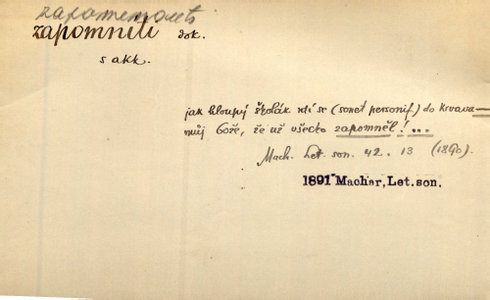 zapomenouti
zapomněti dok.
s akk.
jak hloupý školák rdí se (sonet personif.) do krvava —
můj bože, že už všecko zapomněl! ...
Mach. Let. son. 42. 13 (1890).
1891 Machar, Let. son.